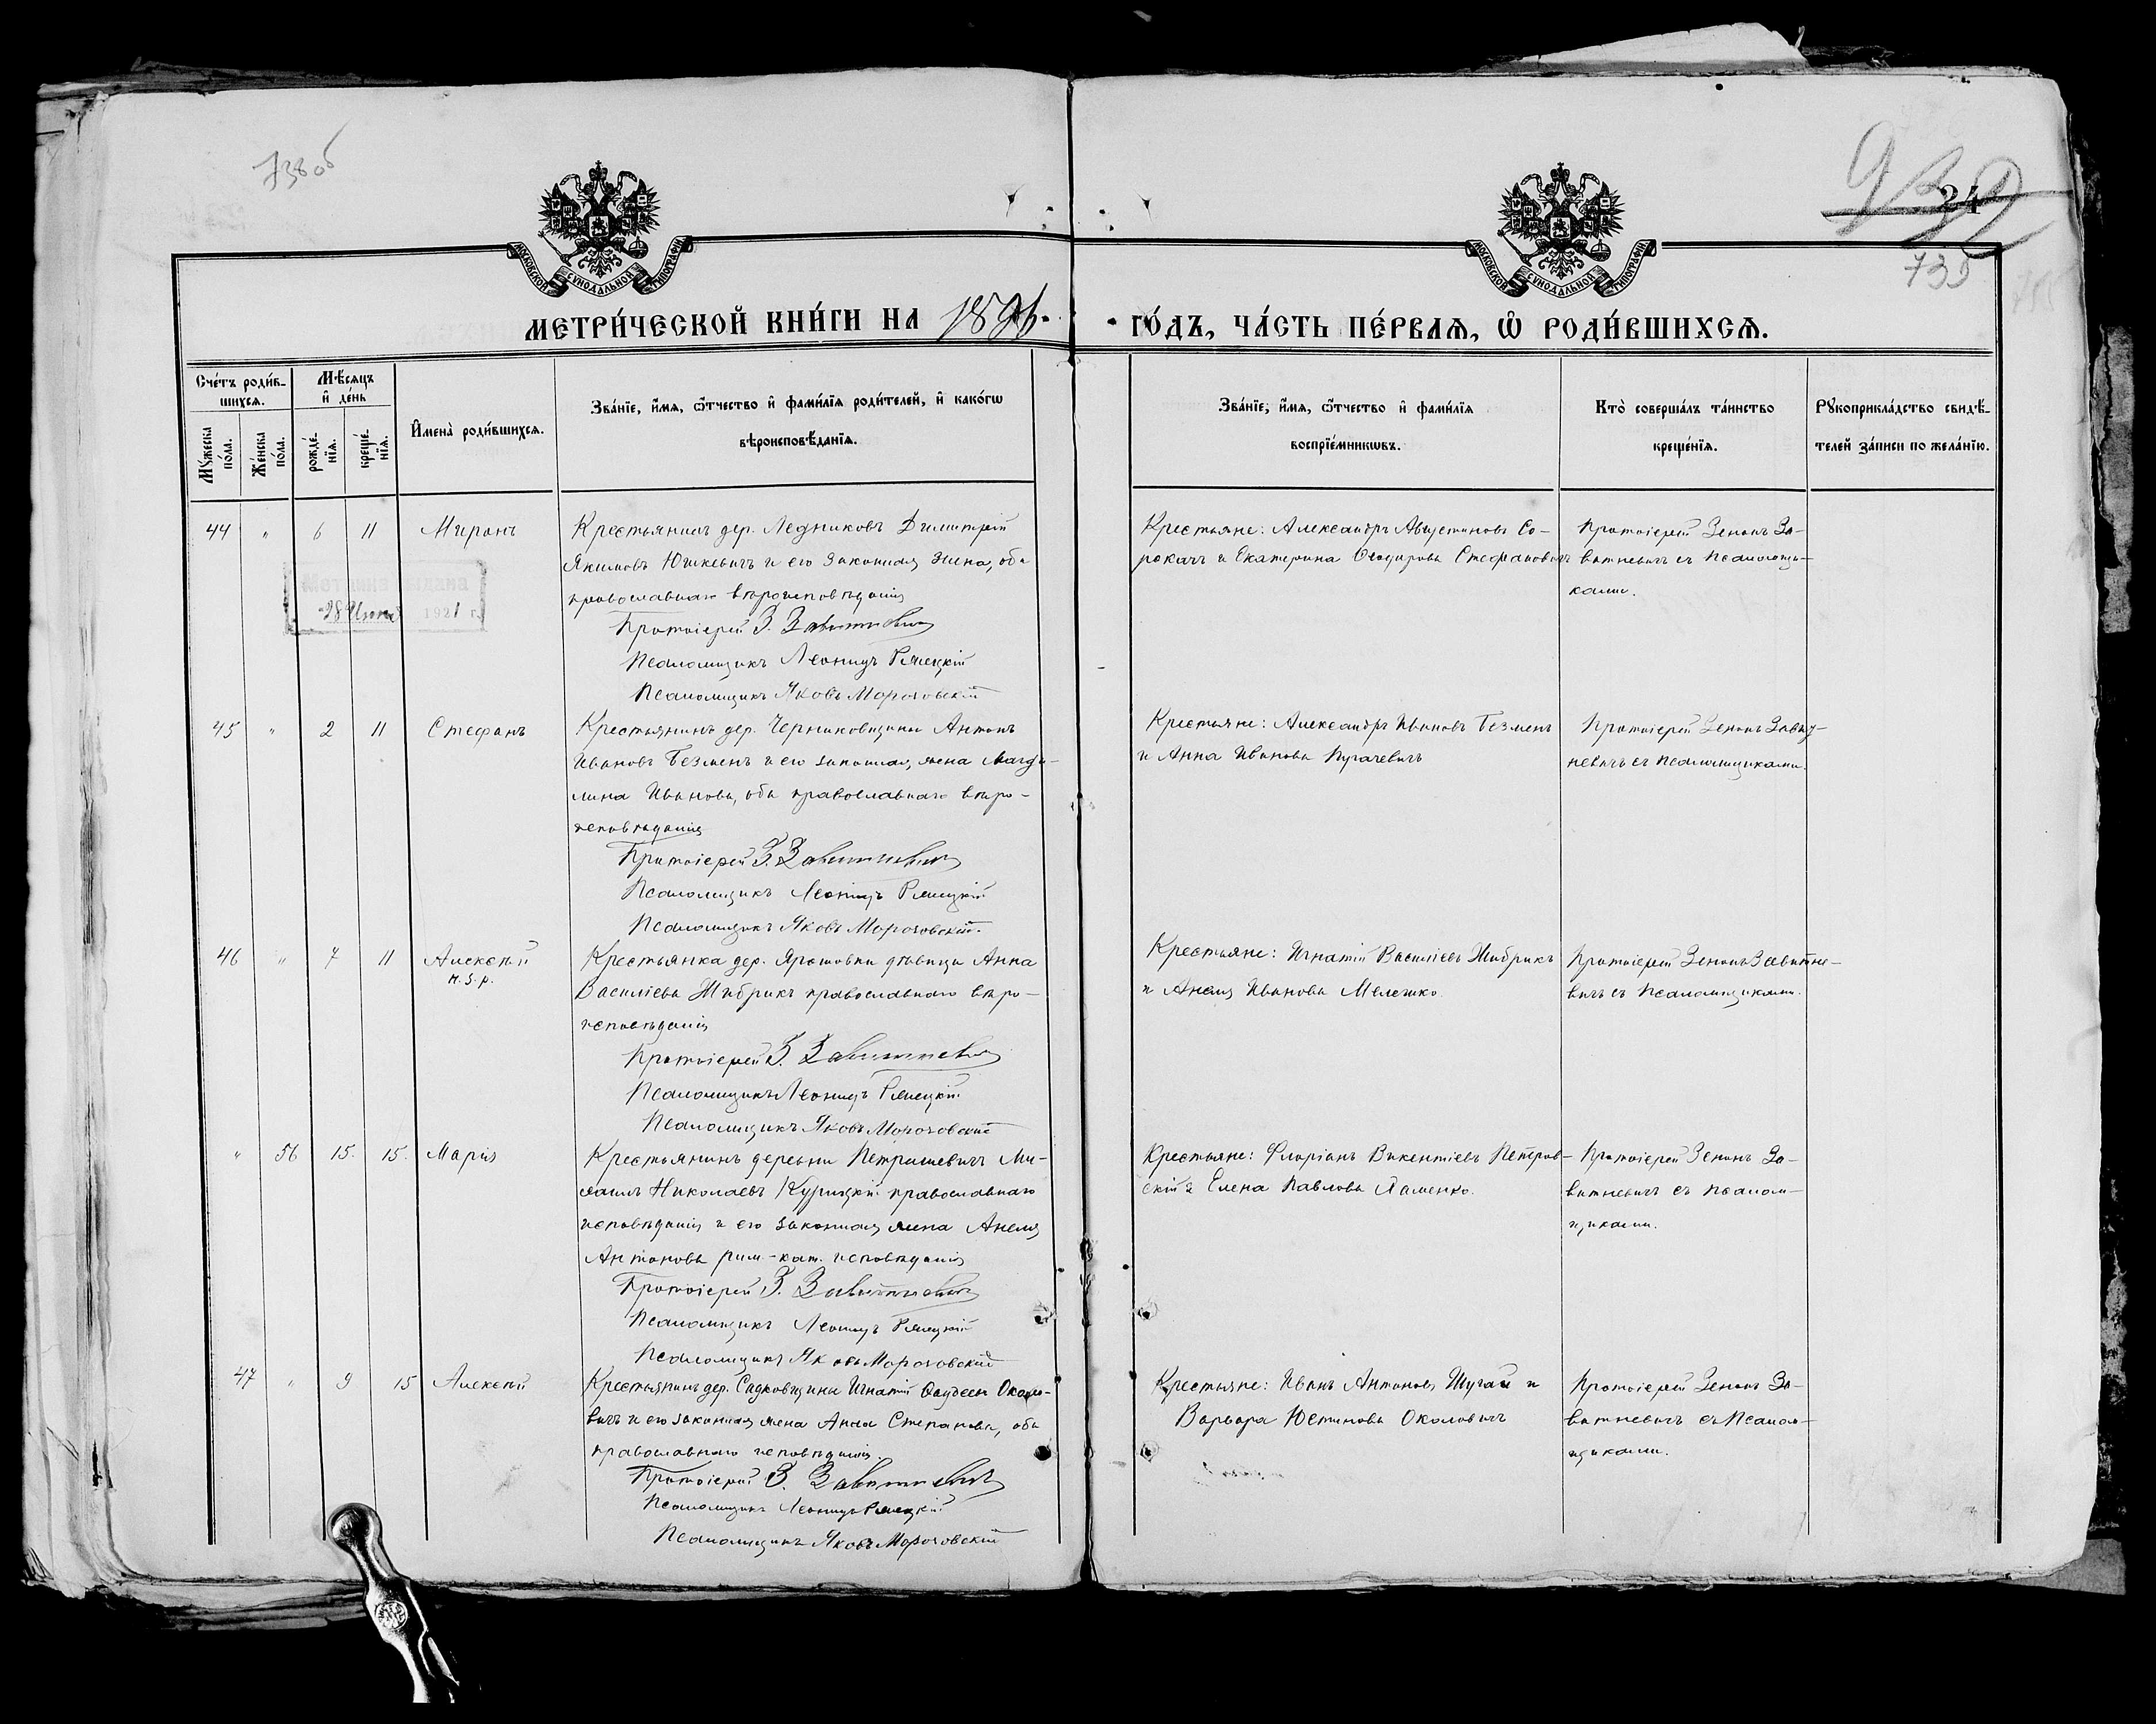 738 об
24
739
МОСКОВСКОЙ СѴНОДАЛЬНОЙ ТИПОГРАФІИ
МОСКОВСКОЙ СѴНОДАЛЬНОЙ ТИПОГРАФІИ
МЕТРИ́ЧЕСКОЙ КНИ́ГИ НА 1896. ГО́ДЪ, ЧА́СТЬ ПЕ́РВАѦ, Ѡ҆ РОДИ́ВШИХСѦ.
Сче́тъ роди́в-
шихсѧ.
Мѣ́сяцъ
и҆ де́нь
Мꙋ́жеска
по́ла.
Же́нска
по́ла.
рожде́-
нїѧ.
креще́-
нїѧ.
И҆мена̀ роди́вшихсѧ.
Зва́нїе, и҆́мѧ, ѻ҆́тчество и҆ фами́лїѧ роди́телей, и҆ како́гѡ
вѣроисповѣ́данїѧ.
Зва́нїе, и҆́мѧ, ѻ҆́тчество и҆ фами́лїѧ
воспрїе́мникѡвъ.
Кто̀ соверша́лъ та́инство
креще́нїѧ.
Рꙋкоприкла́дство свидѣ́-
телей за́писи по жела́нїю.
44 " 6 11 Миронъ
Крестьянинъ дер. Ледниковъ Димитрій
Якимовъ Юшкевичъ и его законная жена, оба
православнаго вѣроисповѣданія
Протоіерей З. Завитневичъ
Псаломщикъ Леонидъ
Псаломщикъ Яковъ Морозовскій
Крестьяне: Александръ Августиновъ Со-
рокачъ и Екатерина Ѳеодорова Стефановичъ
Протоіерей Зенонъ За-
витневичъ съ псаломщи-
ками.
28 1921 г.
45 " 2 11 Стефанъ
Крестьянинъ дер. Черниковщины Антонъ
Ивановъ Безменъ и его законная жена Магда-
лина Иванова, оба православнаго вѣро-
исповѣданія
Протоіерей З. Завитневичъ
Псаломщикъ Леонидъ
Псаломщикъ Яковъ Морозовскій.
Крестьяне: Александръ Ивановъ Безменъ
и Анна Иванова Пугачевичъ
Протоіерей Зенонъ Завит-
невичъ съ псаломщиками.
46 " 7 11 Алексѣй
н. з. р.
Крестьянка дер. Ярошовки дѣвица Анна
Василіева Жибрикъ православнаго вѣро-
исповѣданія
Протоіерей З. Завитневичъ
Псаломщикъ Леонидъ
Псаломщикъ Яковъ Морозовскій
Крестьяне: Игнатій Василіевъ Жибрикъ
и Анеля Иванова Мелешко.
Протоіерей Зенонъ Завитне-
вичъ съ псаломщиками.
" 56 15. 15. Марія
Крестьянинъ деревни Петришевичъ Ми-
хаилъ Николаевъ Курицкій православнаго
исповѣданія и его законная жена Анеля
Антонова рим-кат. исповѣданія
Протоіерей З. Завитневичъ
Псаломщикъ Леонидъ
Псаломщикъ Яковъ Морозовскій
Крестьяне: Флоріанъ Викентіевъ Петров-
скій и Елена Павлова
Протоіерей Зенонъ За-
витневичъ съ псалом-
щиками.
47 " 9 15 Алексѣй
Крестьянинъ дер. Садковщины Игнатій Ѳаддеев Около-
вичъ и его законная жена Анна Степанова, оба
православнаго исповѣданія.
Протоіерей З. Завитневичъ
Псаломщикъ Леонидъ
Псаломщикъ Яковъ Морозовскій
Крестьяне: Иванъ Антоновъ Шугай и
Варвара Юстинова Околовичъ
Протоіерей Зенонъ За-
витневичъ съ псалом-
щиками.